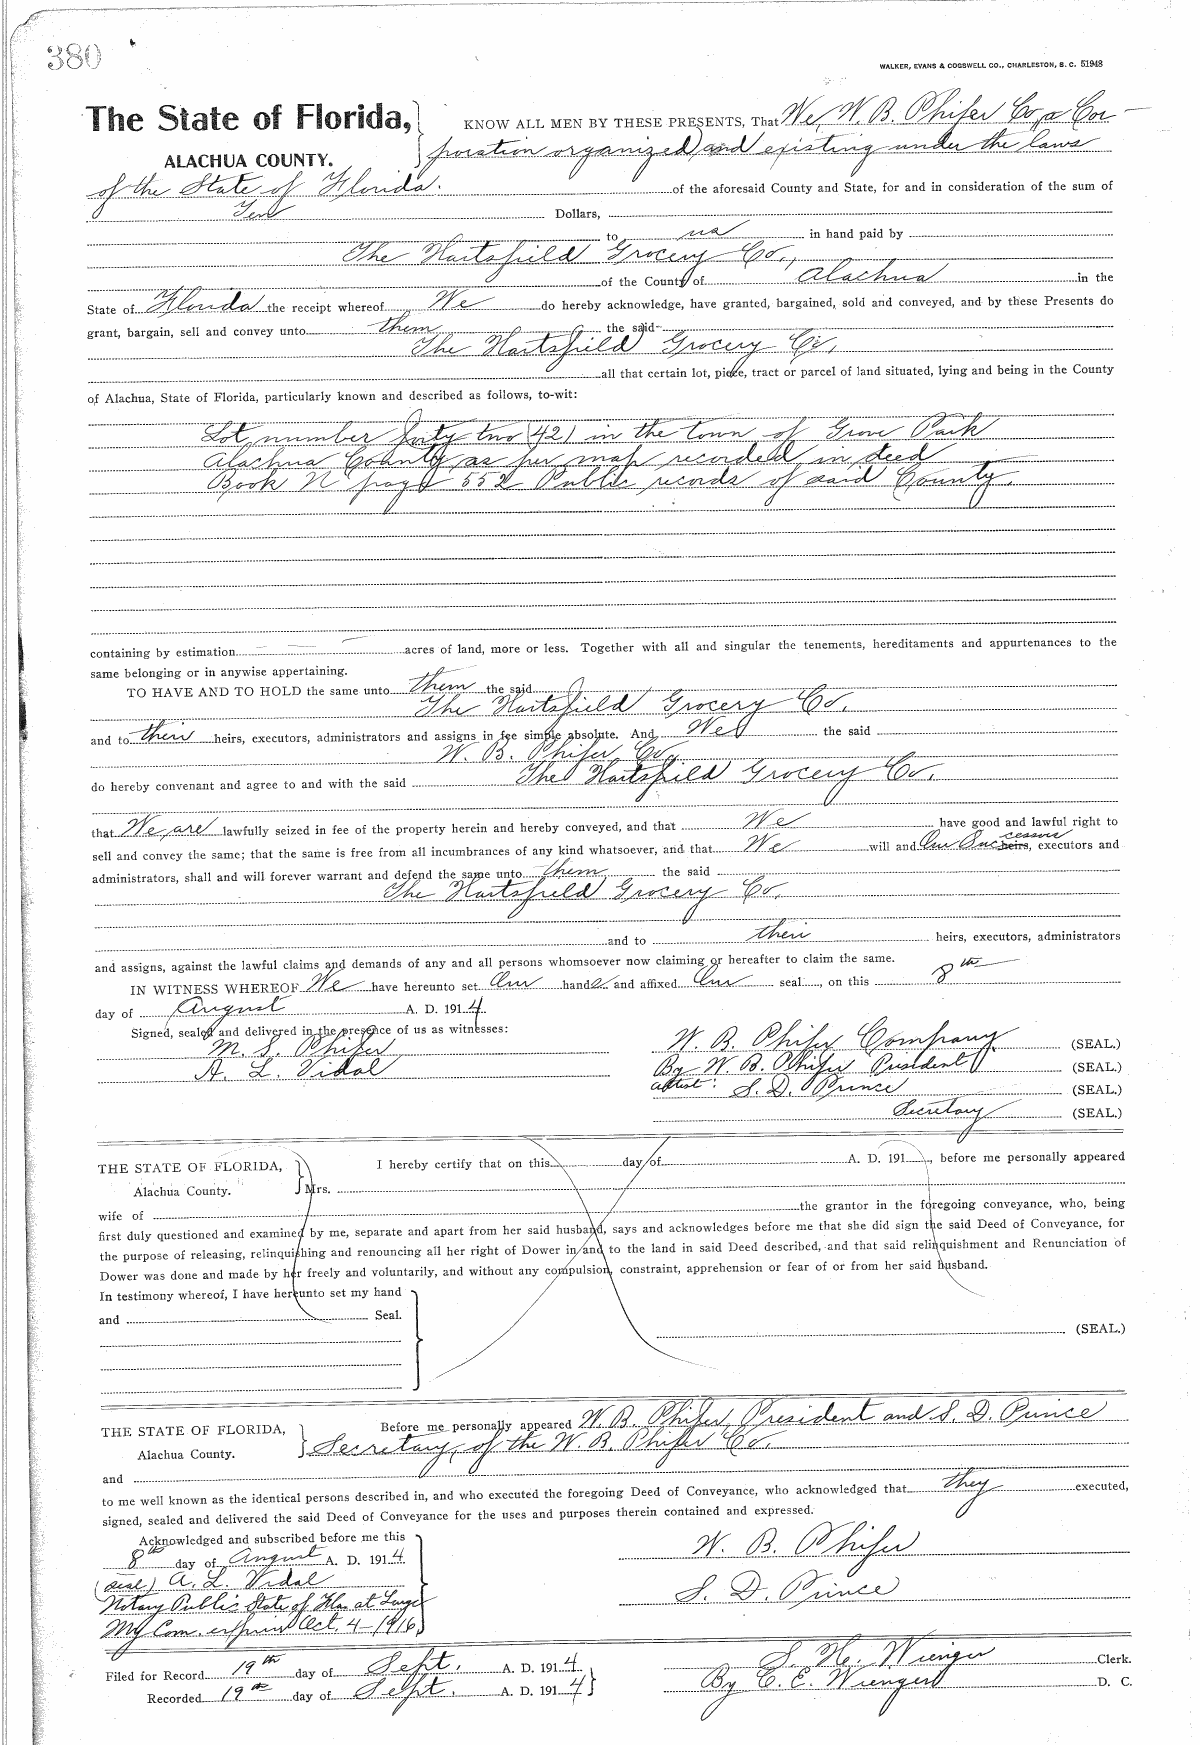 380
WALKER, EVANS & COGSWELL CO., CHARLESTON, S. C. 51948
The State of Florida, KNOW ALL MEN BY THESE PRESENTS, That We, W. B. Phifer Co, a Cor
ALACHUA COUNTY. poration organized and existing under the laws
of the State of Florida. of the aforesaid County and State, for and in consideration of the sum of
Ten Dollars,
to us in hand paid by
The Hartsfield Grocery Co.,
of the County of Alachua in the
State of Florida the receipt whereof We do hereby acknowledge, have granted, bargained, sold and conveyed, and by these Presents do
grant, bargain, sell and convey unto them the said
The Hartsfield Grocery Co,
all that certain lot, piece, tract or parcel of land situated, lying and being in the County
of Alachua, State of Florida, particularly known and described as follows, to-wit:
Lot number forty two (42) in the town of Grove Park
Alachua County as per map recorded in deed
Book N page 552 Public records of said County.
containing by estimation acres of land, more or less. Together with all and singular the tenements, hereditaments and appurtenances to the
same belonging or in anywise appertaining.
TO HAVE AND TO HOLD the same unto them the said
The Hartsfield Grocery Co.
and to their heirs, executors, administrators and assigns in fee simple absolute. And We the said
W. B. Phifer Co.
do hereby convenant and agree to and with the said The Hartsfield Grocery Co.
that We are lawfully seized in fee of the property herein and hereby conveyed, and that We have good and lawful right to
sell and convey the same; that the same is free from all incumbrances of any kind whatsoever, and that We will and Our Successors heirs, executors and
administrators, shall and will forever warrant and defend the same unto them the said
The Hartsfield Grocery Co.
and to their heirs, executors, administrators
and assigns, against the lawful claims and demands of any and all persons whomsoever now claiming or hereafter to claim the same.
IN WITNESS WHEREOF We have hereunto set Our hands and affixed Our seal, on this 8th
day of August A. D. 1914
Signed, sealed and delivered in the presence of us as witnesses:
M. S. Phifer W. B. Phifer Company (SEAL.)
A. L. Vidal By W. B. Phifer President (SEAL.)
attest: S. D. Prince (SEAL.)
Secretary (SEAL.)
THE STATE OF FLORIDA, I hereby certify that on this day of A. D. 191 , before me personally appeared
Alachua County. Mrs.
wife of the grantor in the foregoing conveyance, who, being
first duly questioned and examined by me, separate and apart from her said husband, says and acknowledges before me that she did sign the said Deed of Conveyance, for
the purpose of releasing, relinquishing and renouncing all her right of Dower in and to the land in said Deed described, and that said relinquishment and Renunciation of
Dower was done and made by her freely and voluntarily, and without any compulsion, constraint, apprehension or fear of or from her said husband.
In testimony whereof, I have hereunto set my hand
and Seal.
(SEAL.)
THE STATE OF FLORIDA, Before me personally appeared W. B. Phifer, President and S. D. Prince
Alachua County. Secretary, of the W. B. Phifer Co.
and
to me well known as the identical persons described in, and who executed the foregoing Deed of Conveyance, who acknowledged that they executed,
signed, sealed and delivered the said Deed of Conveyance for the uses and purposes therein contained and expressed.
Acknowledged and subscribed before me this
8th day of August A. D. 1914 W. B. Phifer
(seal) A. L. Vidal S. D. Prince
Notary Public State of Fla. at Large
My Com. expires Oct. 4-1916
Filed for Record 19th day of Sept. A. D. 1914 S. H. Wienges Clerk.
Recorded 19th day of Sept. A. D. 1914 By C. E. Wienges D. C.